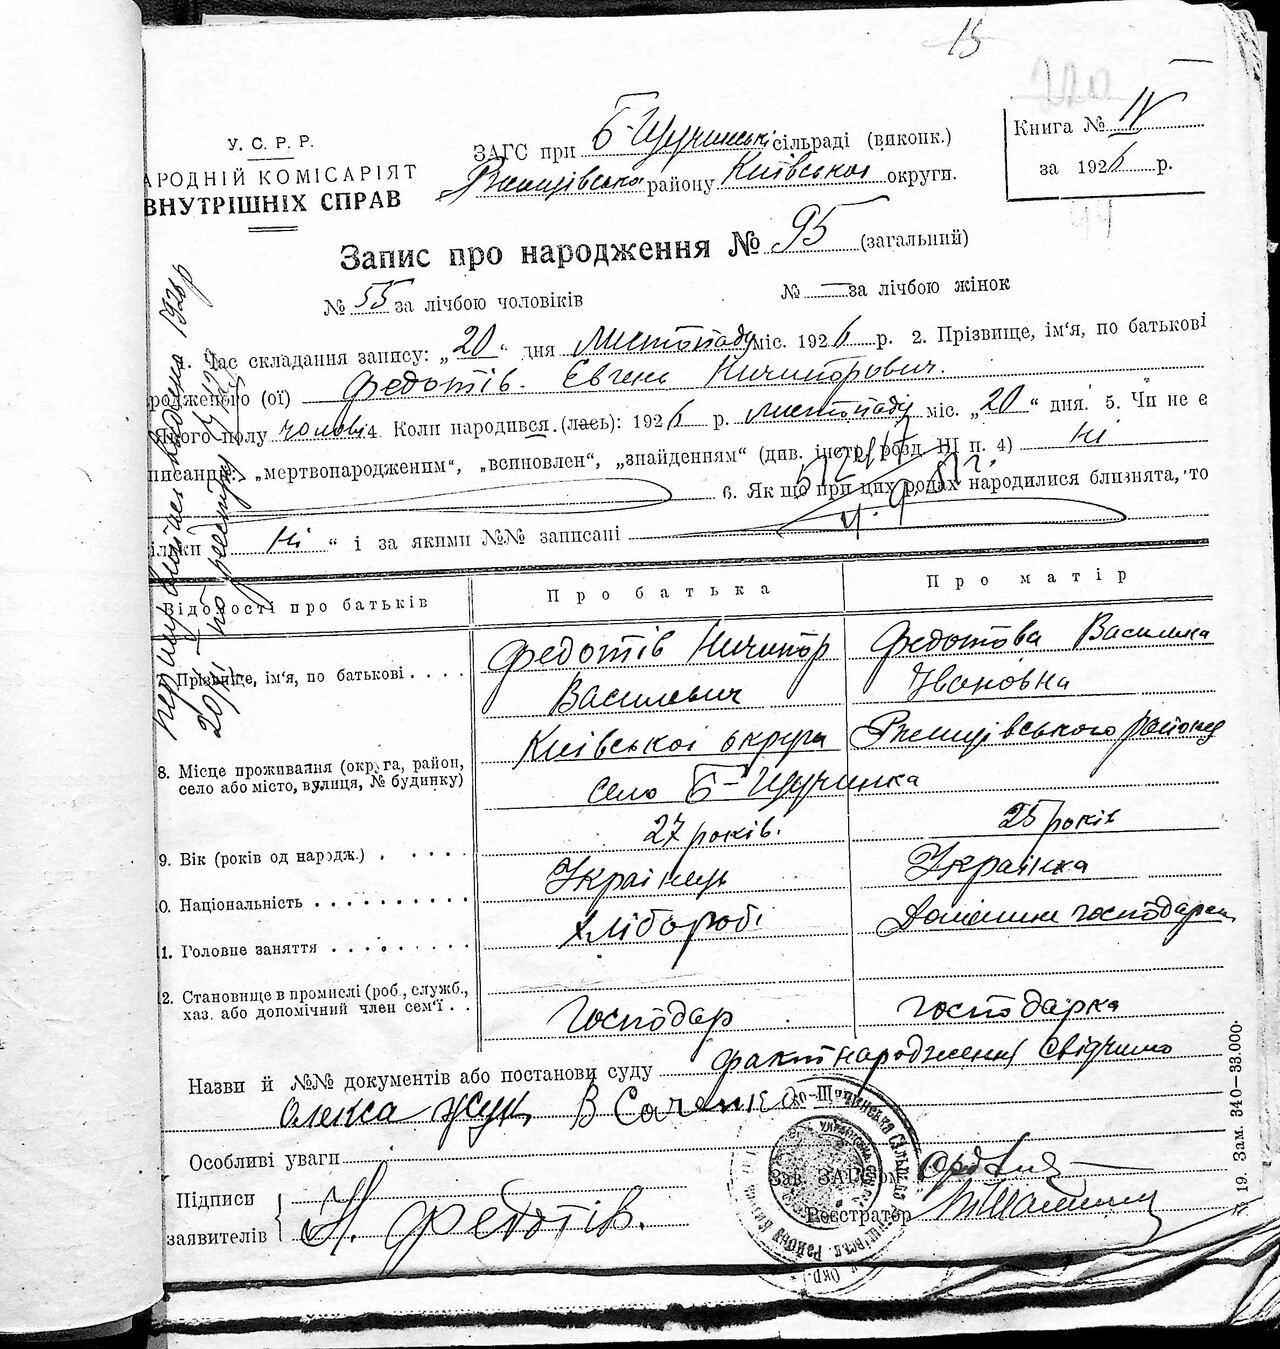 15
220
У. С. Р. Р.
АРОДНІЙ КОМІСАРІЯТ
ВНУТРІШНІХ СПРАВ
ЗАГС при Б-Щучинські сільраді (виконк.)
Ржищівсько району Київської округи.
Книга № IV
за 1926 р.
44
Запис про народження № 95 (загальний)
№ 55 за лічбою чоловіків
№ — за лічбою жінок
1. Час складання запису: „20“ дня листопаду міс. 1926 р. 2. Прізвище, ім'я, по батькові
родженого (ої) Федотів. Євгень Ничипорович.
якого полу чолові 4. Коли народився. (лась): 1926 р. листопаду міс. „20“ дня. 5. Чи не є
писаний: „мертвонародженим“, „всиновлен“, „знайденням“ (див. інстр. розд. III п. 4) ні
6. Як що при цих родах народилися близнята, то
ільки „ ні “ і за якими №№ записані
Відомості про батьків
Про батька
Про матір
7. Прізвище, ім'я, по батькові
Федотів Ничипор
Василевич
Федотова Василина
Івановна
8. Місце проживання (округа, район,
село або місто, вулиця, № будинку)
Київської округи Ржищівського району
село Б-Щучинка
9. Вік (років од народж.)
27 років.
25 років
0. Національність
Українець
Українка
1. Головне заняття
Хлібороб
Домашне господарст
2. Становище в промислі (роб., служб.,
хаз. або допомічний член сем'ї
Господар
господарка
Назви й №№ документів або постанови суду факт народження свідчимо
Олекса Жук В Саченко
Особливі уваги
Підписи
заявителів
Н. Федотів.
Зав. ЗАГСом
Реєстратор
19. Зам. 340—33.000.